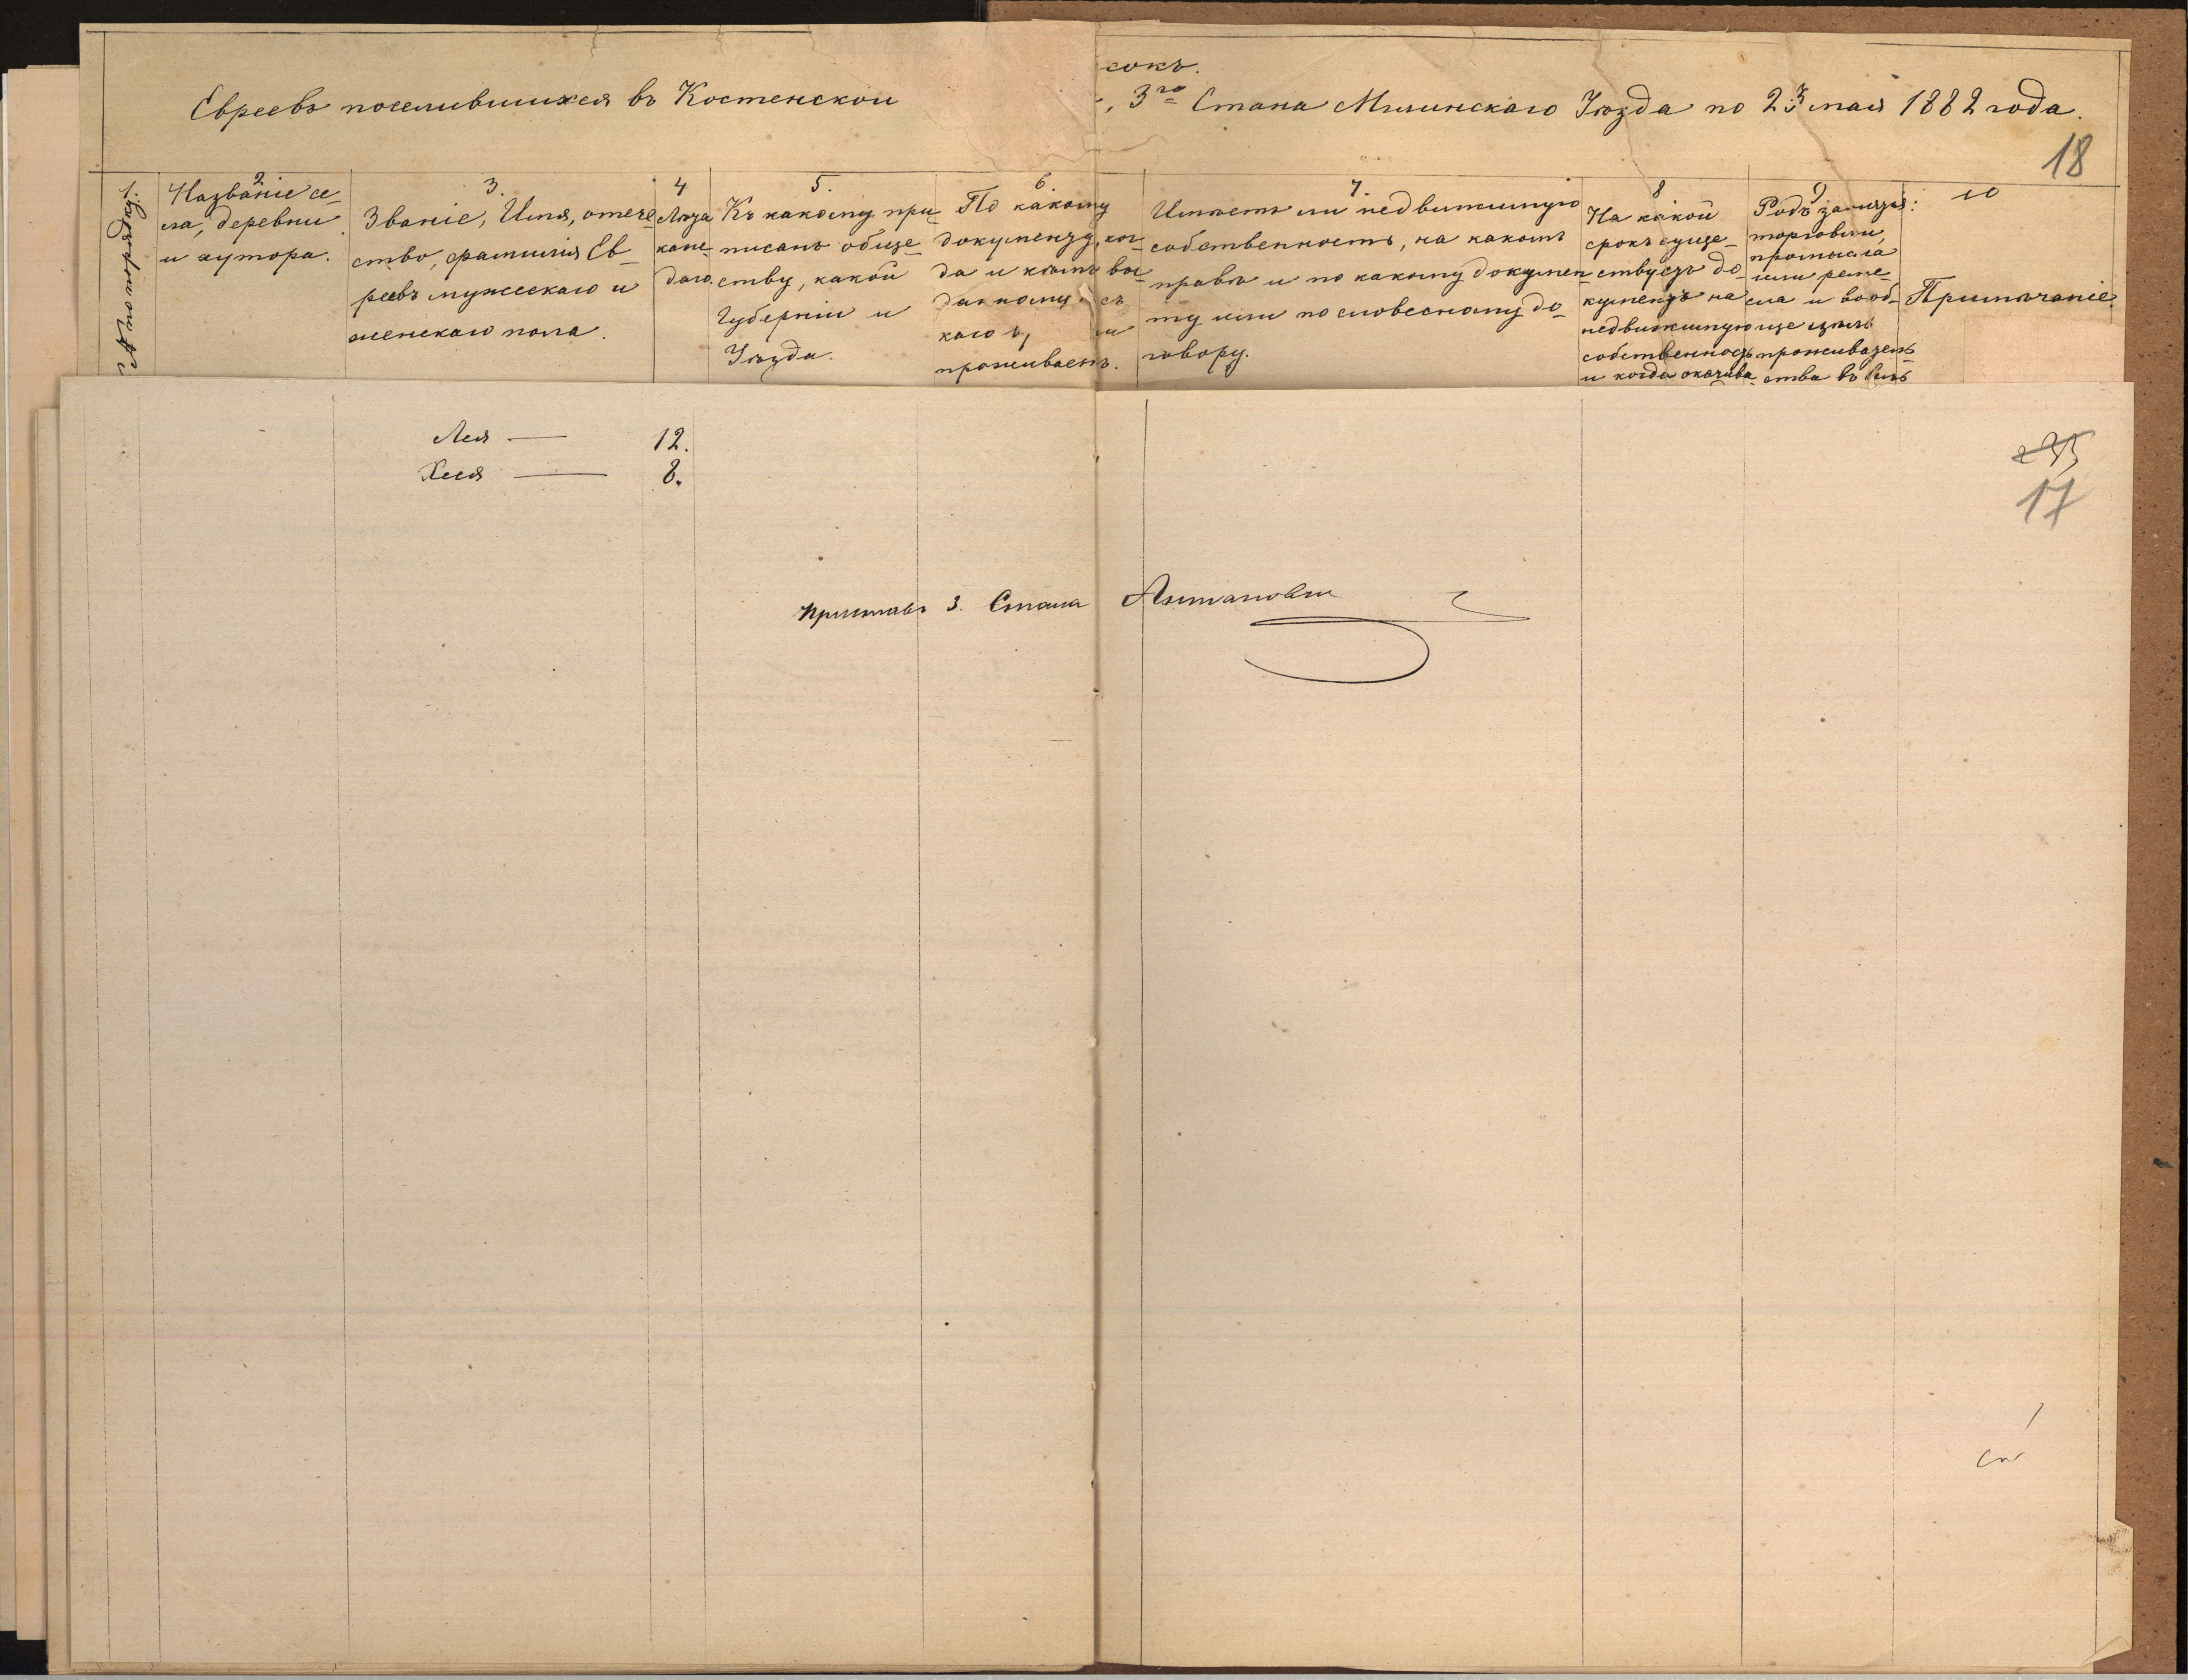 сокъ.
Евреевъ поселившихся въ Костенской 3го Стана Мглинскаго Уѣзда по 23 мая 1882 года.
18
1.
№ по порядку.
2
Названіе се-
ла, деревни
и хутора.
3.
Званіе, Имя, отече
ство, фамилія Ев-
реевъ мужескаго и
женскаго пола.
4
Лѣта
каж-
даго.
5.
Къ какому при-
писанъ обще-
ству, какой
Губерніи и
Уѣзда.
6.
По какому
документу, ког-
да и кѣмъ вы-
данному съ
каго
проживаетъ.
7.
Имѣетъ ли недвижимую
собственность, на какомъ
правѣ и по какому докумен
ту или по словесному до-
говору.
8
На какой
срокъ суще-
ствуетъ до-
кументъ на
недвижимую
собственность
и когда оканчива
9
Родъ занятія:
торговли,
промысла
или реме-
сла и вооб-
ще цѣль
проживатель
ства въ селѣ
10
Примѣчаніе.
Лея — 12.
Хася — 8.
17
Приставъ 3. Стана